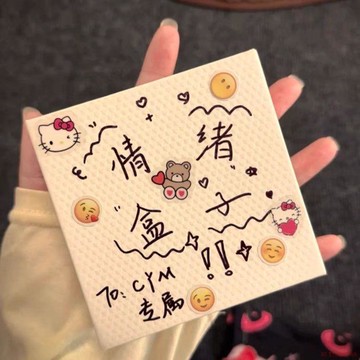 情绪
盒子!!
To: CYM
专属